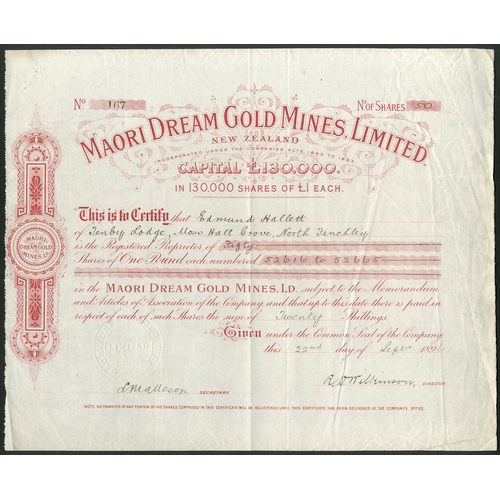 No 167 No OF SHARES 50
MAORI DREAM GOLD MINES, LIMITED
NEW ZEALAND
INCORPORATED UNDER THE COMPANIES ACTS 1862 TO 1893
CAPITAL £130,000.
IN 130,000 SHARES OF £1 EACH.
This is to Certify that Edmund Hallett
of Tenby Lodge, Moss Hall Grove, North Finchley
is the Registered Proprietor of Fifty
Shares of One Pound each numbered 52616 to 52665
MAORI
DREAM GOLD
MINES, LD.
in the MAORI DREAM GOLD MINES, LD. subject to the Memorandum
and Articles of Association of the Company, and that up to this date there is paid in
respect of each of such Shares the sum of Twenty Shillings.
Given under the Common Seal of the Company
this 22nd day of Septr 1896
LIMITED
SECRETARY. R.D. Wilkinson DIRECTOR
NOTE. NO TRANSFER OF ANY PORTION OF THE SHARES COMPRISED IN THIS CERTIFICATE WILL BE REGISTERED UNTIL THIS CERTIFICATE HAS BEEN DELIVERED AT THE COMPANY'S OFFICE.